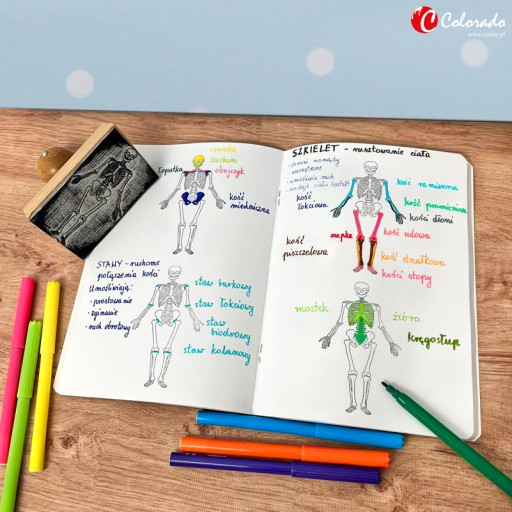 Colorado
www.sylaby.pl
czaszka
żuchwa
łopatka
obojczyk
kość
miedniczna
STAWY - ruchome
połączenia kości
Umożliwiają:
• prostowanie
• zginanie
• ruch obrotowy
staw barkowy
staw łokciowy
staw
biodrowy
staw kolanowy
SZKIELET - rusztowanie ciała
- chroni narządy
wewnętrzne
- umożliwia ruch
- nadaje ciału kształt
kość
łokciowa
kość ramienna
kość promieniowa
kości dłoni
rzepka
kość udowa
kość
piszczelowa
kość strzałkowa
kości stopy
mostek
żebra
kręgosłup